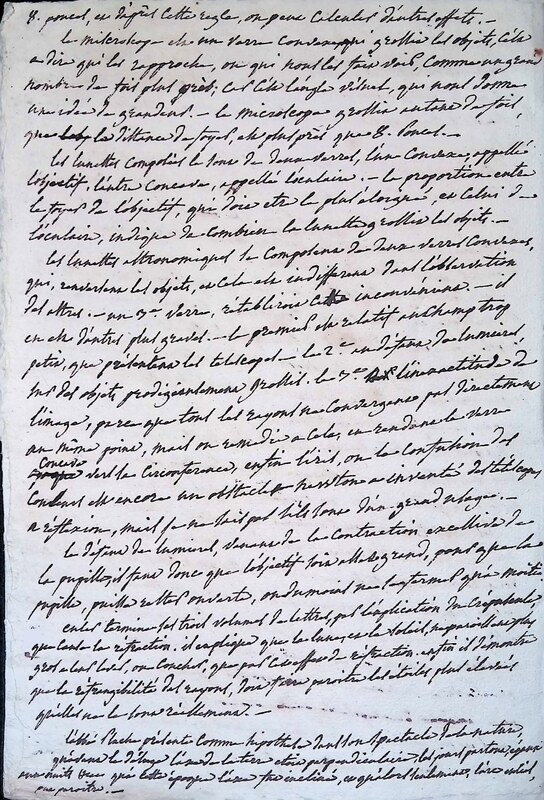 8. pouces, et d'après cette regle, on peut calculer d'autres effets. —
Le microscope est un verre convexe qui grossit les objets, c'est
a dire qui les rapproche, ou qui nous les fait voir, comme un grand
nombre de fois plus près; car c'est l'angle visuel, qui nous donne
une idée de grandeur. — Le microscope grossit autant de fois,
que la distance du foyer, est plus près que 8. pouces. —
Les lunettes composées le sont de deux verres, l'un convexe, appellé
l'objectif, l'autre concave, appellé l'oculaire. — La proportion entre
le foyer de l'objectif, qui doit etre le plus eloigné, et celui de
l'oculaire, indique de combien la lunette grossit les objets. —
Les lunettes astronomiques se composent de deux verres convexes,
qui, renversent les objets, et cela est indifferent dans l'observation
des astres. — un 3.e verre, rétabliroit cet inconvenient. — il
en est d'autres plus graves. — Le premier est relatif au champ trop
petit, que présentent les telescopes. — Le 2.e au défaut de lumiere,
des objets prodigieusement grossis. Le 3.e l'inexactitude de
l'image, parce que tous les rayons ne convergent pas directement
au même point, mais on remedie a cela, en rendant le verre
concave
vers la circonference, enfin l'iris, ou la confusion des
couleurs est encore un obstacle. newton a inventé des télescopes
a reflexion, mais je ne sais pas s'ils sont d'un grand usage. —
Le défaut de lumiere, venant de la contraction excessive de
la pupille, il faut donc que l'objectif soit assez grand, pour que la
pupille, puisse rester ouverte, ou du moins ne se fermer qu'a moitié
Euler termine ses trois volumes de lettres, par l'explication du crepuscule,
que cause la refraction. il explique que la lune, et le soleil, ne paroissent plus
gros a leur lever, ou coucher, que par cet effet de refraction. enfin il démontre
que la réfrangibilité des rayons, doit faire paroitre les étoiles plus élevées
qu'elles ne le sont réellement. —
L'abbé Pluche présente comme hypothese dans son spectacle de la nature,
qu'avant le déluge l'axe de la terre etoit perpendiculaire, les jours partout, egaux
aux nuits que qu'a cette époque l'axe fut incliné, et qu'alors seulement, l'arc en ciel,
put paroitre. —